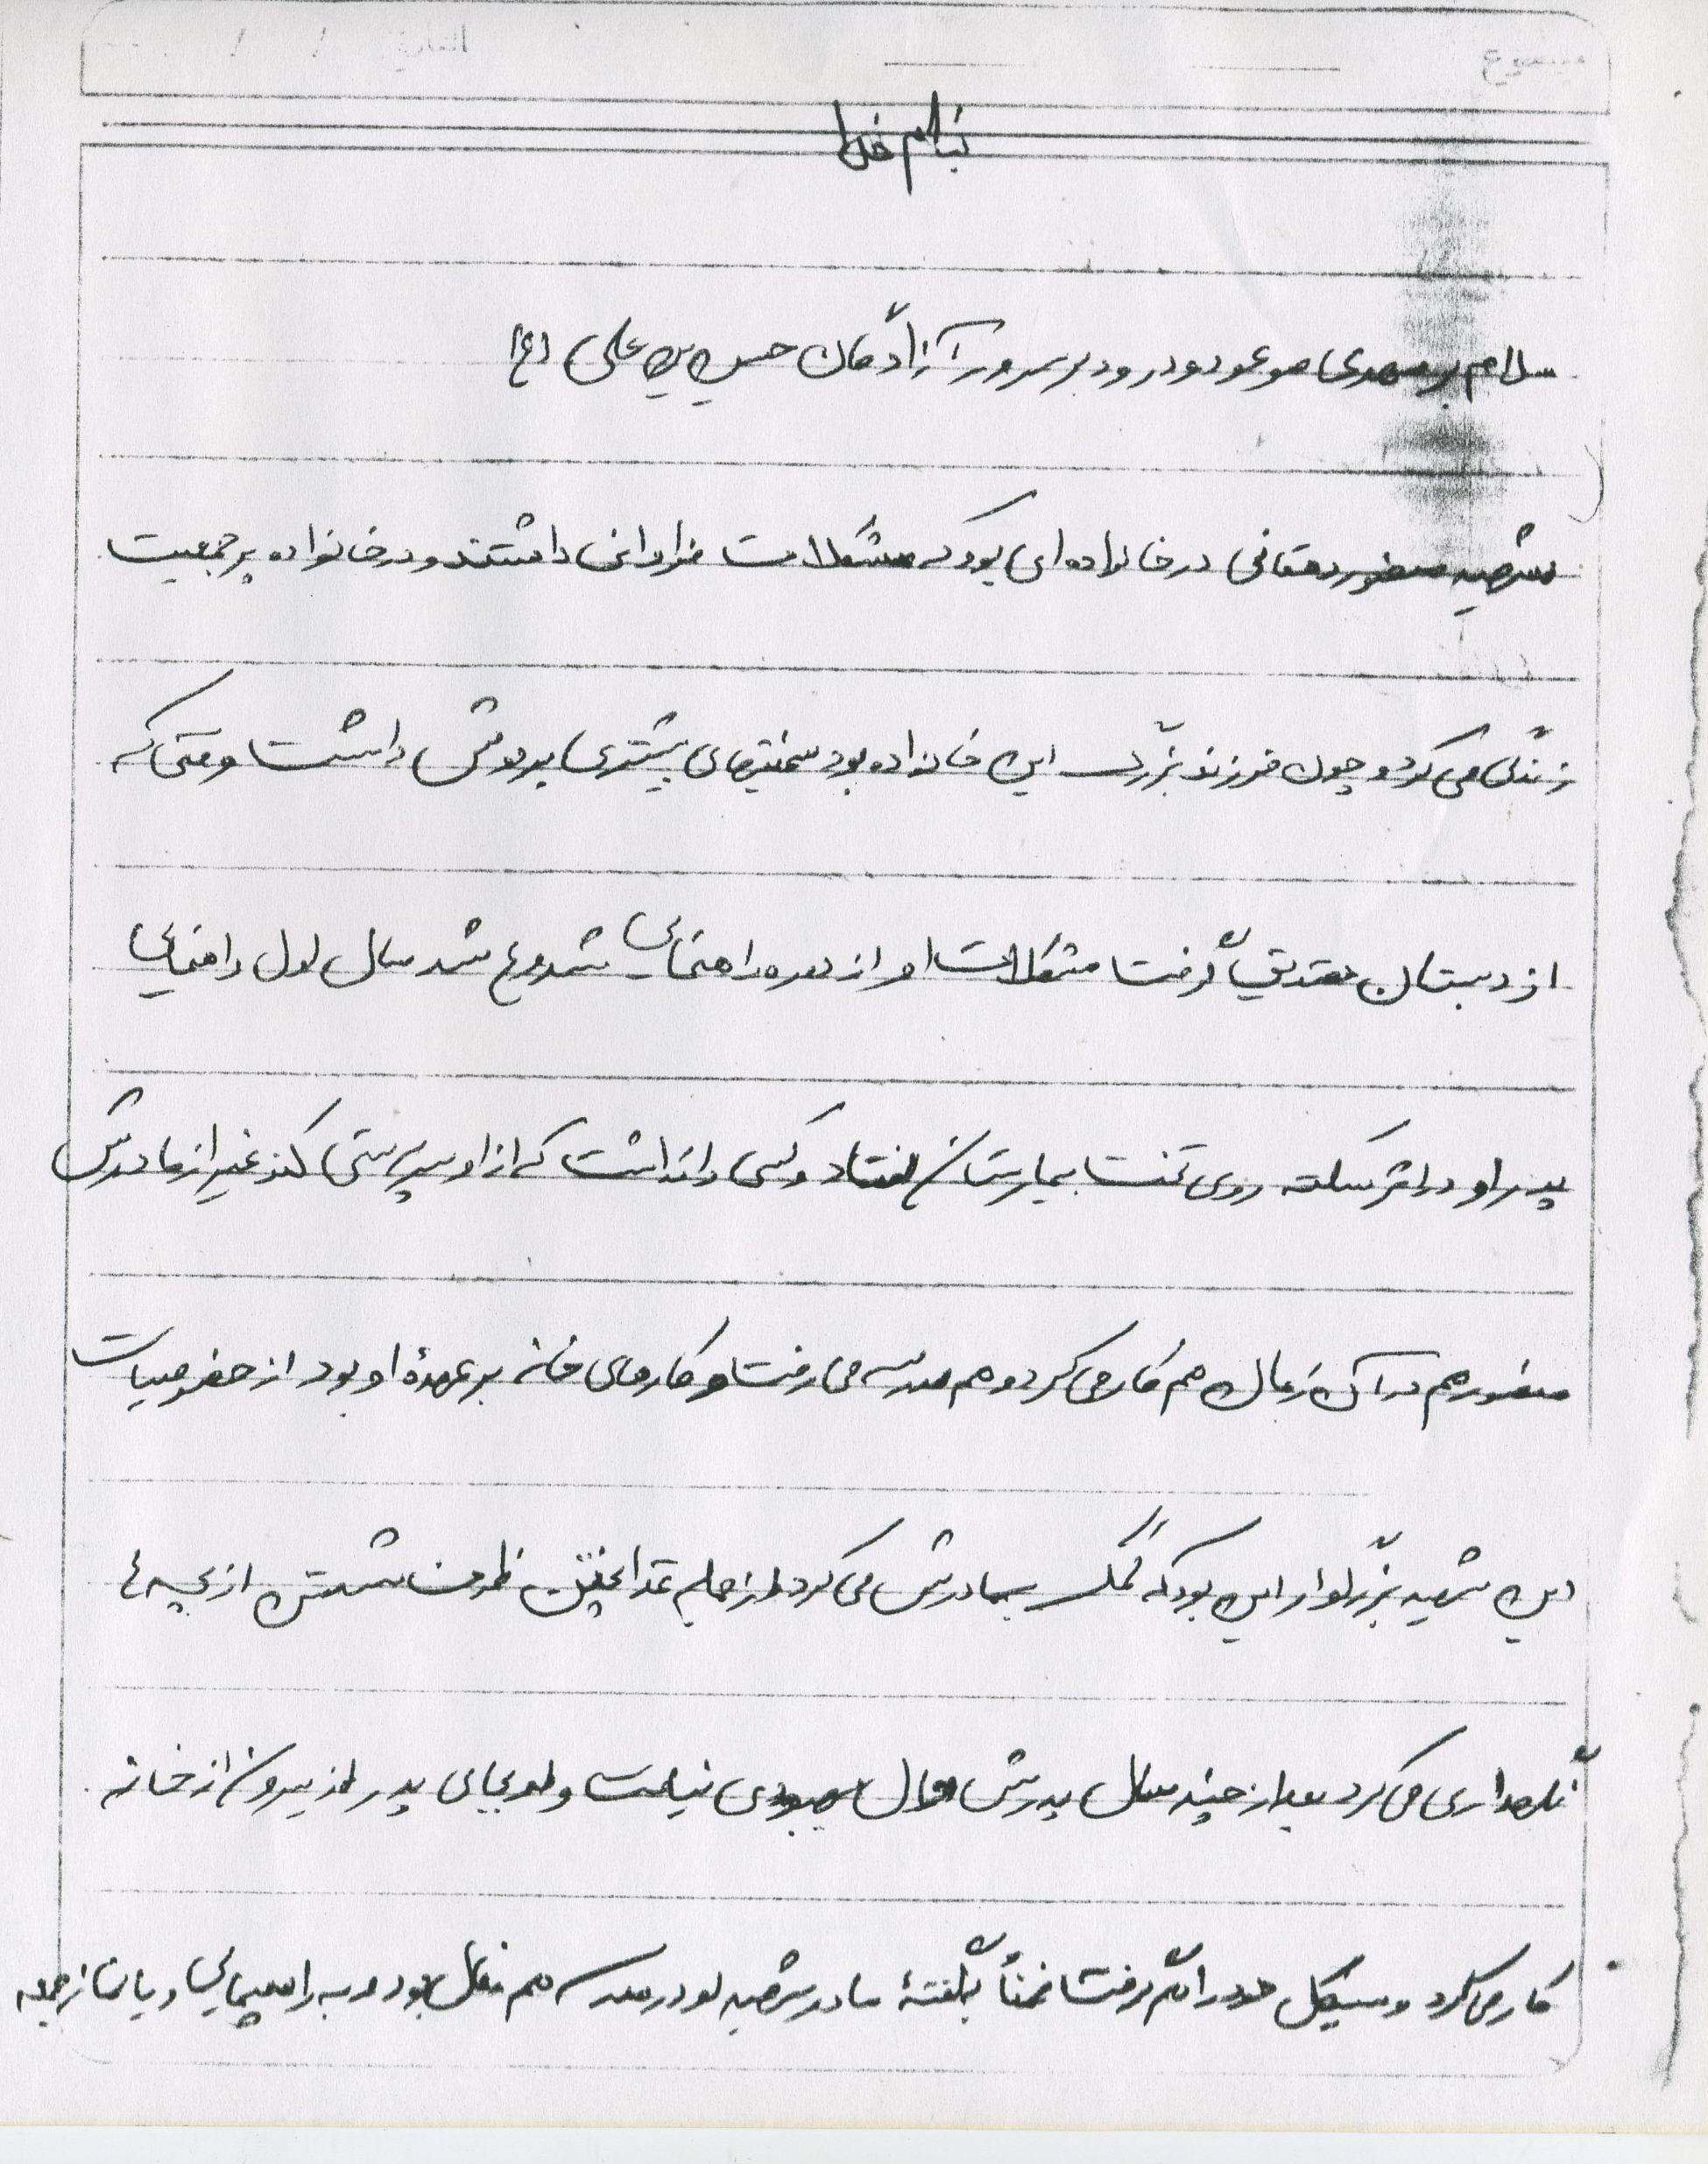 بنام خدا
سلام بر مهدی موعود و درود بر سرور آزادگان حسین بن علی (ع)
شهید منصور دهقانی در خانواده‌ای بود که مشکلات فراوانی داشتند و در خانواده پر جمعیت
زندگی می کرد و چون فرزند بزرگ این خانواده بود سختیهای بیشتری بر دوش داشت وقتی که
از دبستان تصدیق گرفت مشکلات او از دوره راهنمایی شروع شد سال اول راهنمایی
پدر او در اثر سکته روی تخت بیمارستان افتاد و کسی را نداشت که از او سرپرستی کند غیر از مادرش
منصور هم در آن زمان هم کار می کرد و هم مدرسه می رفت و کارهای خانه بر عهدهٔ او بود از خصوصیات
این شهید بزرگوار این بود که کمک به مادرش می کرد از جمله غذا پختن ظرف شستن از بچه ها
نگهداری می کرد بعد از چند سال پدرش بهبودی نیافت و او بجای پدر در بیرون از خانه
کار می کرد و سیکل خود را هم گرفت ضمناً بگفتهٔ مادر شهید او در مدرسه هم فعال بود و به راهپیمایی و یا نماز جمعه